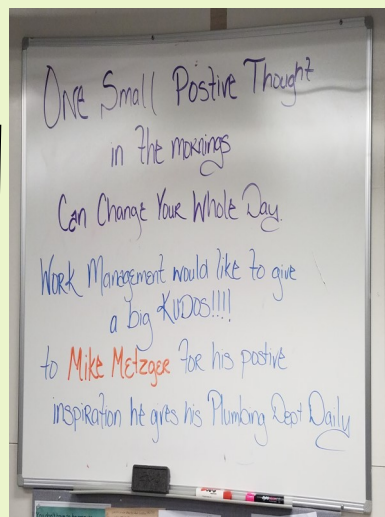 ONE Small Postive Thought
in the mornings
Can Change Your Whole Day.
WORK Management would like to give
a big KUDOS!!!!
to Mike Metzger for his postive
inspiration he gives his Plumbing Dept Daily